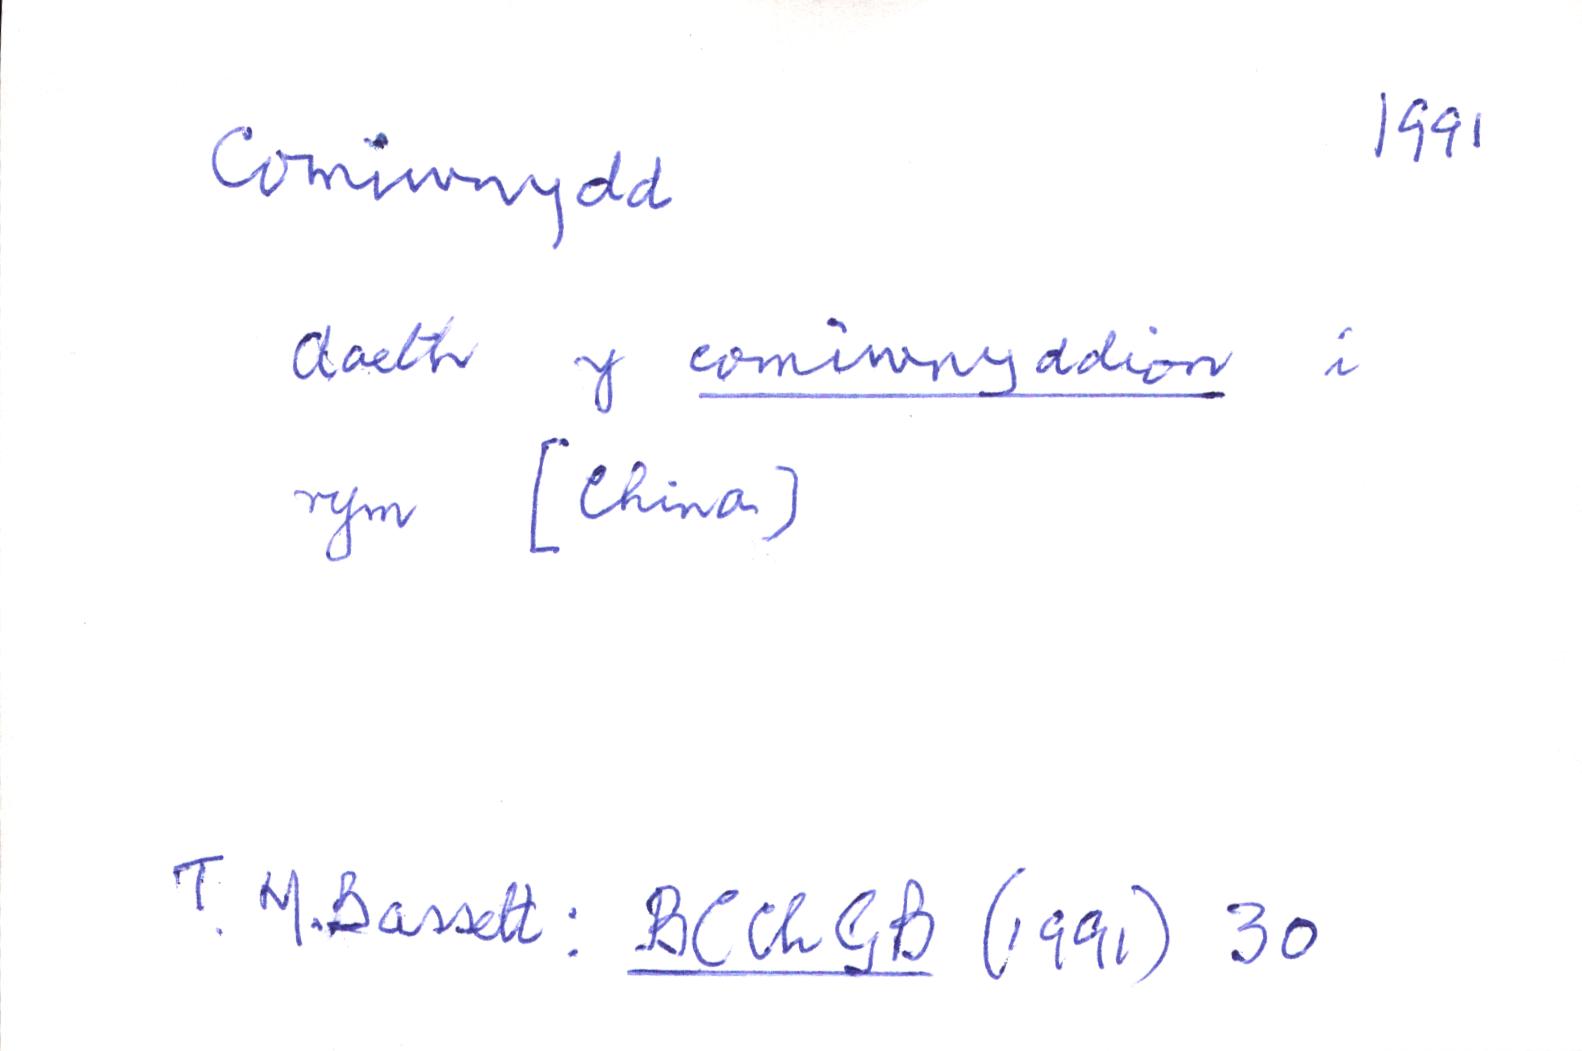 1991
Comiwnydd
daeth y comiwnyddion i
rym [China]
T. M. Bassett: BCChGB (1991) 30